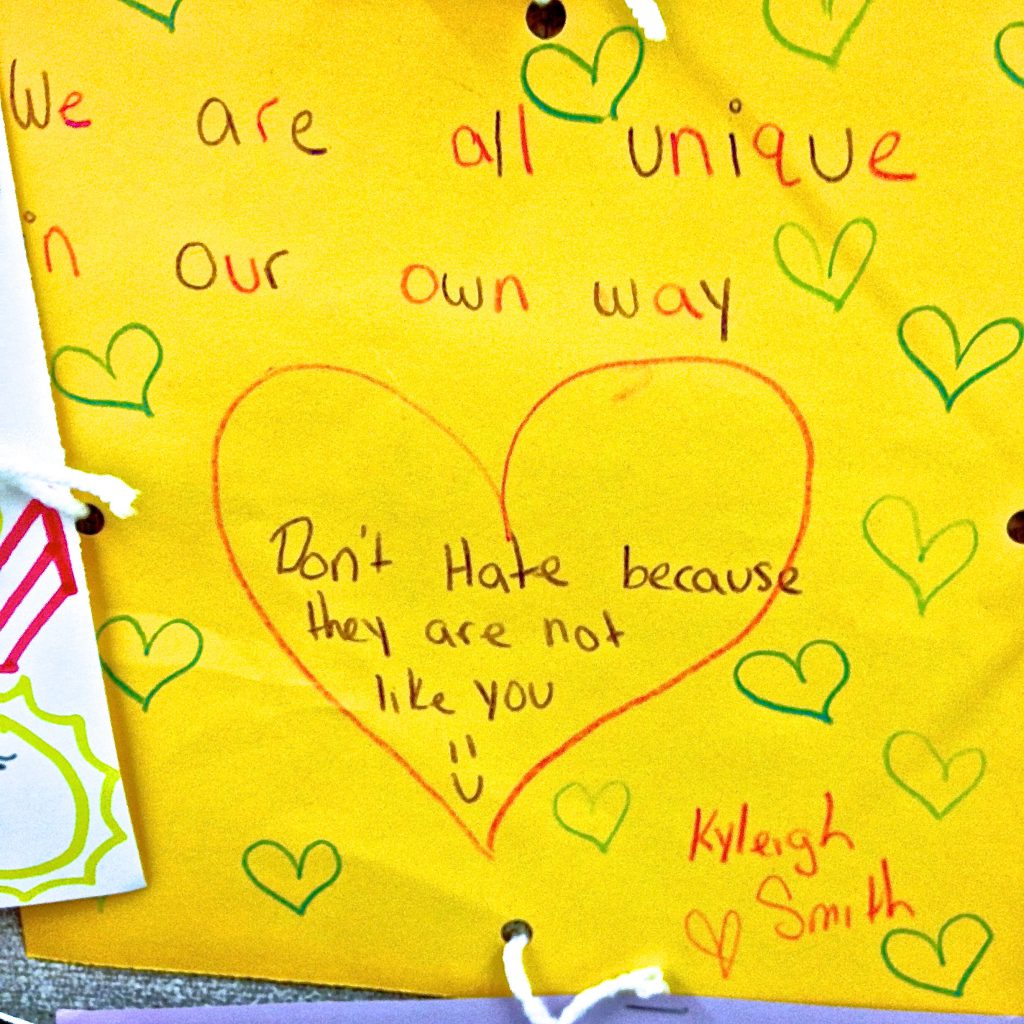 We are all unique
in our own way
Don't Hate because
they are not
like you
Kyleigh
Smith